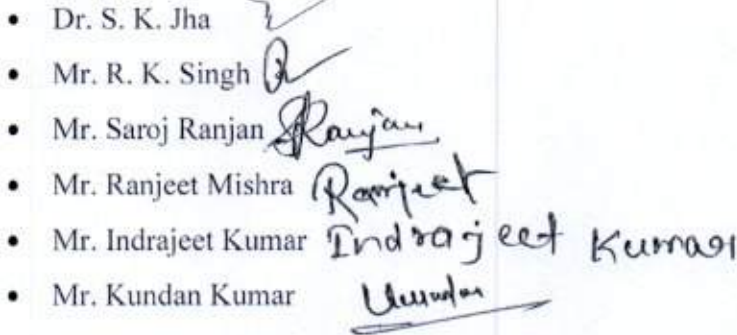 • Dr. S. K. Jha
• Mr. R. K. Singh
• Mr. Saroj Ranjan SRanjan
• Mr. Ranjeet Mishra Ranjeet
• Mr. Indrajeet Kumar Indrajeet Kumar
• Mr. Kundan Kumar